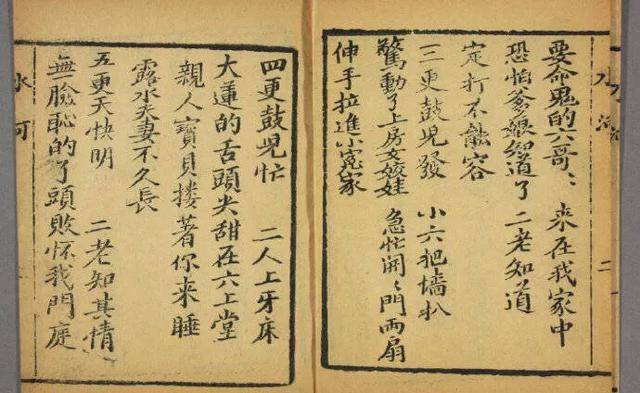 水河 二
要命鬼的六哥〻 來在我家中
恐怕爹娘知道了 二老知道
定打不能容
三更鼓兒發 小六把墻扒
驚動了上房女姣娃 急忙開〻門両扇
伸手拉進小冤家
四更鼓兒忙 二人上牙床
大蓮的舌頭尖甜在六上堂
親人寶貝摟著你來睡
露水夫妻不久長
五更天快明 二老知其情
無臉恥的了頭敗怀我門庭
水河